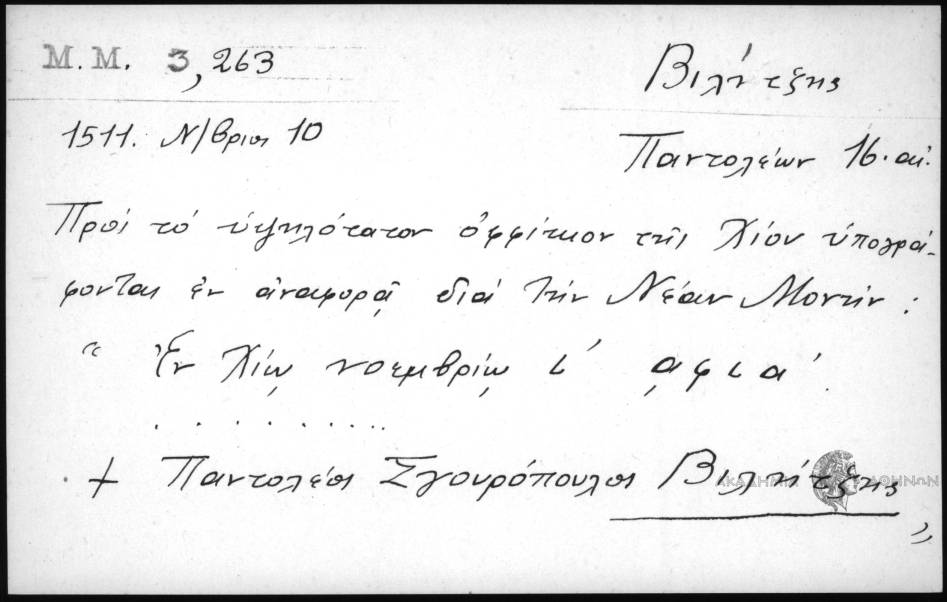 M. M. 3, 263
Βιλήτζης
1511. Ν/βριος 10
Παντολέων 16. αἰ.
Πρὸς τὸ ὑψηλότατον ὀφφίκιον τῆς Χίου ὑπογρά-
φονται ἐν ἀναφορᾷ διὰ τὴν Νέαν Μονὴν :
“ Ἐν Χίῳ νοεμβρίῳ ι΄ ͵αφια΄
. . . . . . . . . .
+ Παντολέος Σγουρόπουλος Βιλλήτζης „
ΑΚΑΔΗΜΙΑ ΑΘΗΝΩΝ